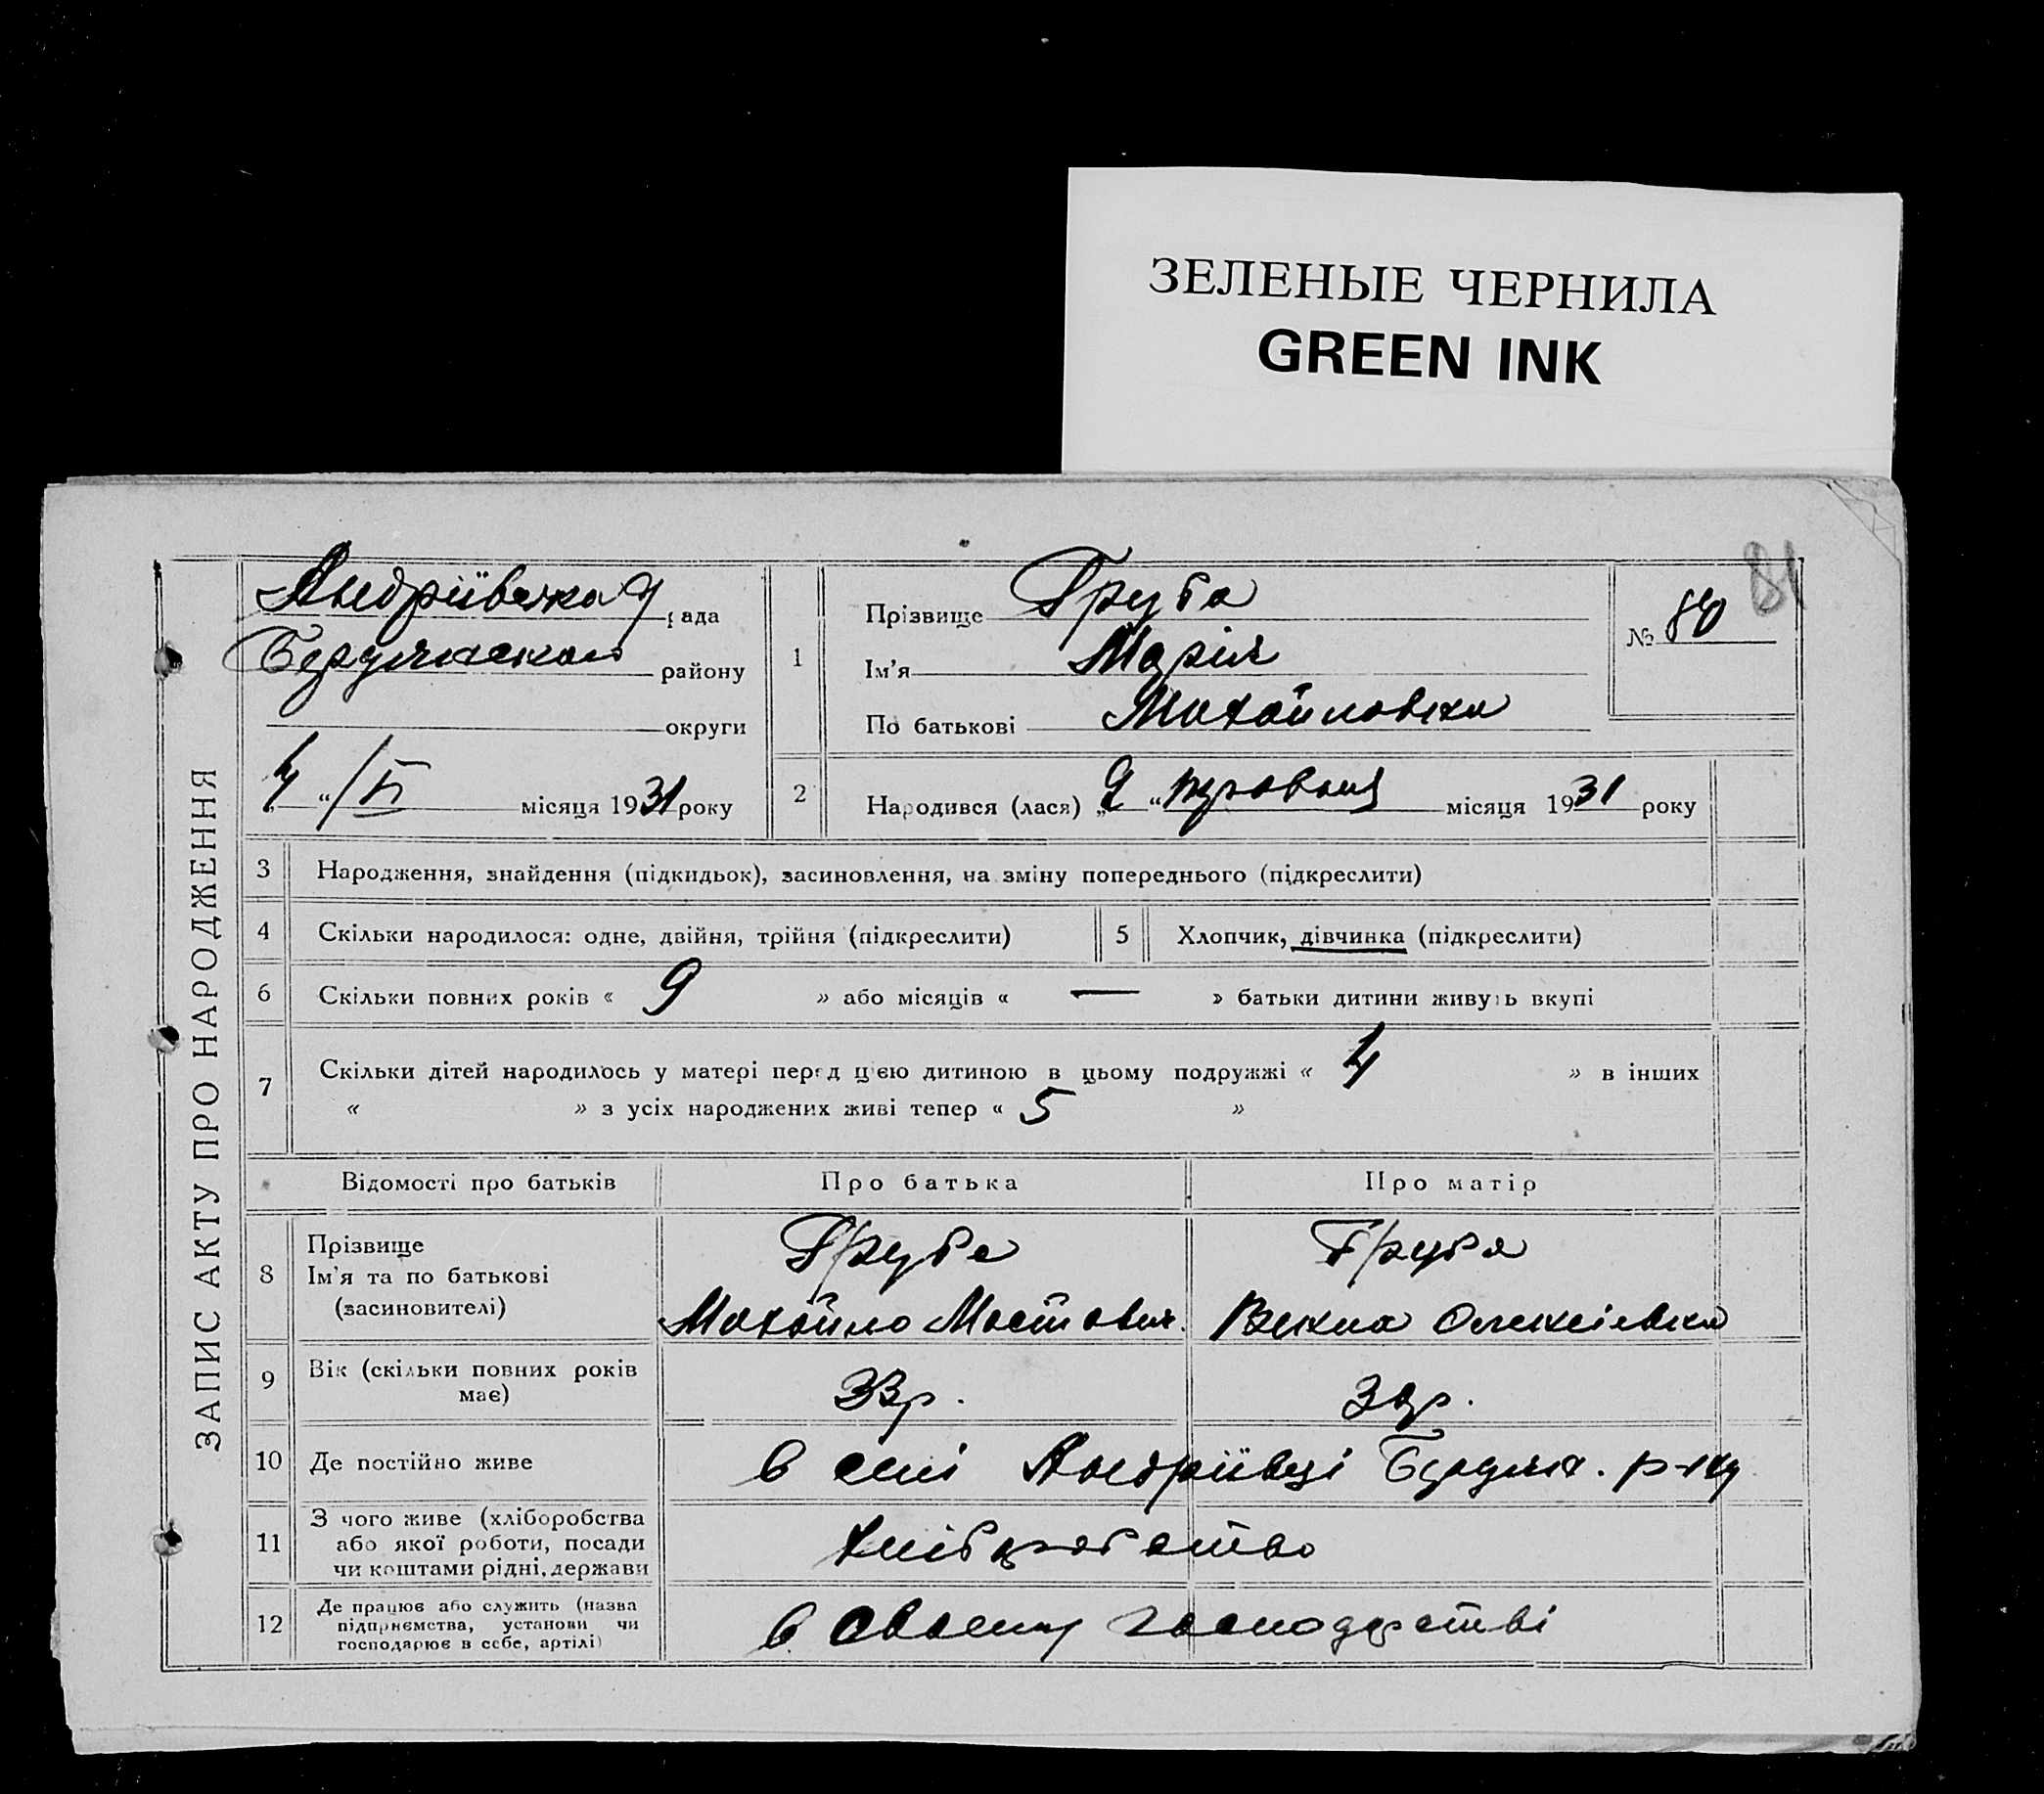 ЗЕЛЕНЫЕ ЧЕРНИЛА
GREEN INK
81
ЗАПИС АКТУ ПРО НАРОДЖЕННЯ
Андріївська рада
Бердянського району
округи
„4“ /VI місяця 1931 року
1
Прізвище Груба
Ім'я Марія
По батькові Михайловна
№ 80
2 Народився (лася) „ “ місяця 1931 року
3 Народження, знайдення (підкидьок), засиновлення, на зміну попереднього (підкреслити)
4 Скільки народилося: одне, двійня, трійня (підкреслити)
5 Хлопчик, дівчинка (підкреслити)
6 Скільки повних років « 9 » або місяців « — » батьки дитини живуть вкупі
7 Скільки дітей народилось у матері перед цією дитиною в цьому подружжі « 4 » в інших
« » з усіх народжених живі тепер « 5 »
Відомості про батьків Про батька Про матір
8 Прізвище
Ім'я та по батькові
(засиновителі)
Груба
Михайло
Груба
Олексіевна
9 Вік (скільки повних років
має)
33 р.
10 Де постійно живе
в селі Андріївці Бердянс. р-ну
11 З чого живе (хліборобства
або якої роботи, посади
чи коштами рідні, держави
хліборобство
12 Де працює або служить (назва
підприємства, установи чи
господарює в себе, артілі)
в своему господарстві